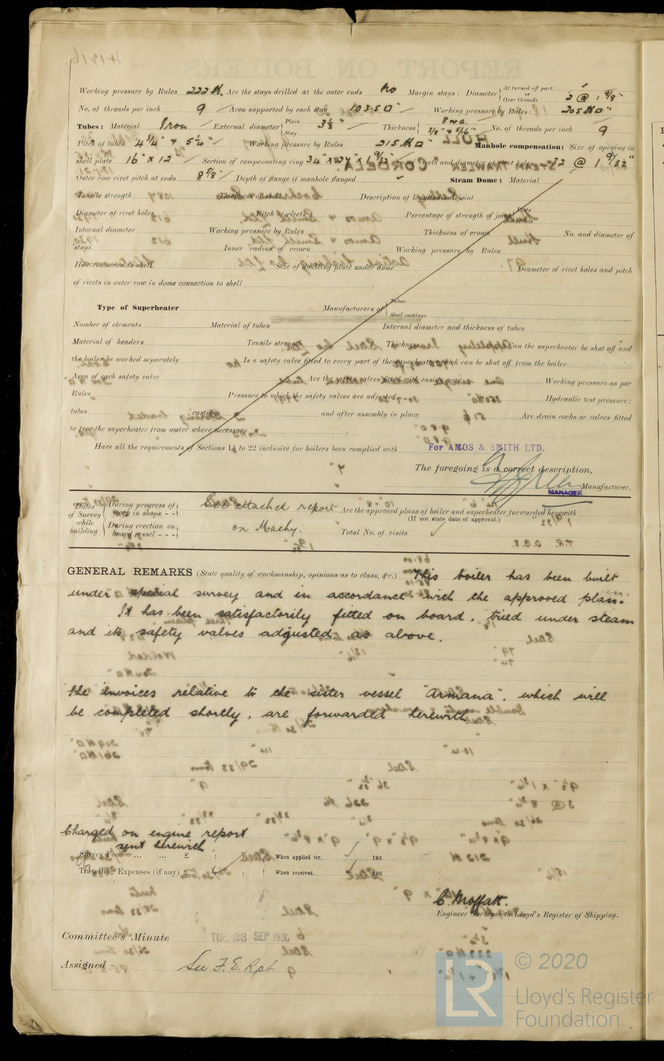 Working pressure by Rules 222 Are the stays drilled at the outer ends No Margin stays: Diameter { At turned off part, or Over threads 2 @ 1 7/8"
No. of threads per inch 9 Area supported by each stay 103.5 □" Working pressure by Rules 205
Tubes: Material Iron External diameter { Plain Stay 3 1/2" Thickness { 8 W.G. No. of threads per inch 9
Pitch of tubes 4 3/4" × 5 1/4" Working pressure by Rules 215 Manhole compensation: Size of opening in
shell plate 16" × 12" Section of compensating ring No. of rivets and diameter of rivet holes 32 @ 1 9/32"
Outer row rivet pitch at ends 8 7/8" Depth of flange if manhole flanged Steam Dome: Material
Tensile strength Thickness of shell Description of longitudinal joint
Diameter of rivet holes Pitch of rivets Percentage of strength of joint { Plate Rivets
Internal diameter Working pressure by Rules Thickness of crown No. and diameter of
stays Inner radius of crown Working pressure by Rules
How connected to shell Size of doubling plate under dome Diameter of rivet holes and pitch
of rivets in outer row in dome connection to shell
Type of Superheater Manufacturers of { Tubes Steel castings
Number of elements Material of tubes Internal diameter and thickness of tubes
Material of headers Tensile strength Thickness Can the superheater be shut off and
the boiler be worked separately Is a safety valve fitted to every part of the superheater which can be shut off from the boiler
Area of each safety valve Are the safety valves fitted with easing gear Working pressure as per
Rules Pressure to which the safety valves are adjusted Hydraulic test pressure:
tubes and after assembly in place Are drain cocks or valves fitted
to free the superheater from water where necessary
Have all the requirements of Sections 14 to 22 inclusive for boilers been complied with
For AMOS & SMITH LTD.
The foregoing is a correct description,
MANAGER Manufacturer.
Dates of Survey while building { During progress of work in shops - - } See attached report Are the approved plans of boiler and superheater forwarded herewith
(If not state date of approval.)
{ During erection on board vessel - - - } on Machy. Total No. of visits
GENERAL REMARKS (State quality of workmanship, opinions as to class, &c.) This boiler has been built
under special survey and in accordance with the approved plan.
It has been satisfactorily fitted on board, tried under steam
and its safety valves adjusted as above.
The invoices relative to the sister vessel "Armana", which will
be completed shortly, are forwarded herewith
Charged on engine report
sent herewith
Survey Fee ... ... £ : : When applied for, 192
Travelling Expenses (if any) £ : : When received, 192
C. Moffatt.
Engineer Surveyor to Lloyd's Register of Shipping.
Committee's Minute TUE 23 SEP 1930
Assigned See F. E. Rpt.
LR © 2020
Lloyd's Register
Foundation